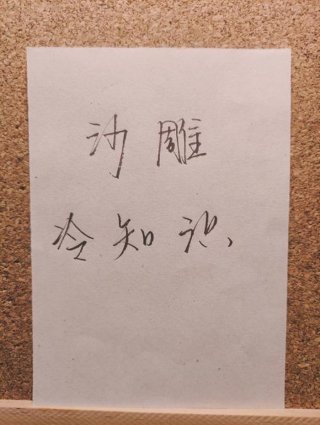 沙雕
冷知识